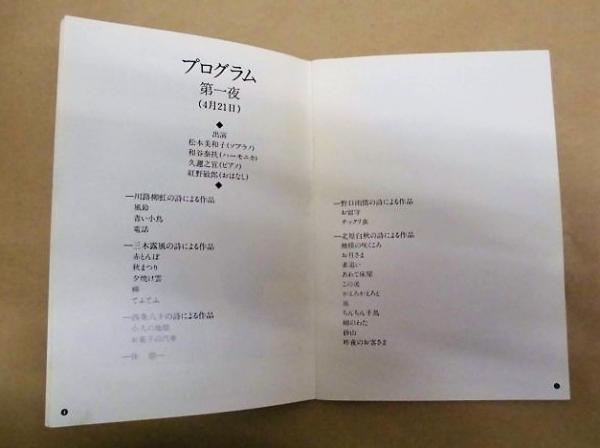 プログラム
第一夜
(4月21日)
出演
松本美和子(ソプラノ)
和谷泰扶(ハーモニカ)
久邇之宜(ピアノ)
紅野敏郎(おはなし)
―川路柳虹の詩による作品
風鈴
青い小鳥
電話
―三木露風の詩による作品
赤とんぼ
秋まつり
夕焼け雲
てふてふ
―西条八十の詩による作品
小人の地獄
お菓子の汽車
―休 憩―
―野口雨情の詩による作品
お留守
チックリ虫
―北原白秋の詩による作品
の咲くころ
お月さま
あわて床屋
この道
かえろかえろと
ちんちん千鳥
のわた
砂山
昨夜のお客さま